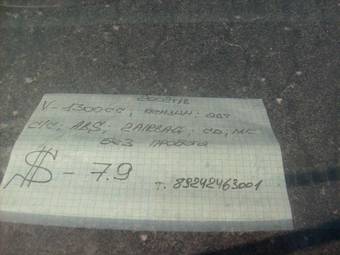 2002 г/в
V-1300cc, БЕНЗИН. 
C/C, ABS, 2AIRBAG. CD, MC
БЕЗ ПРОБЕГА
$ - 7.9
т. 89242463001